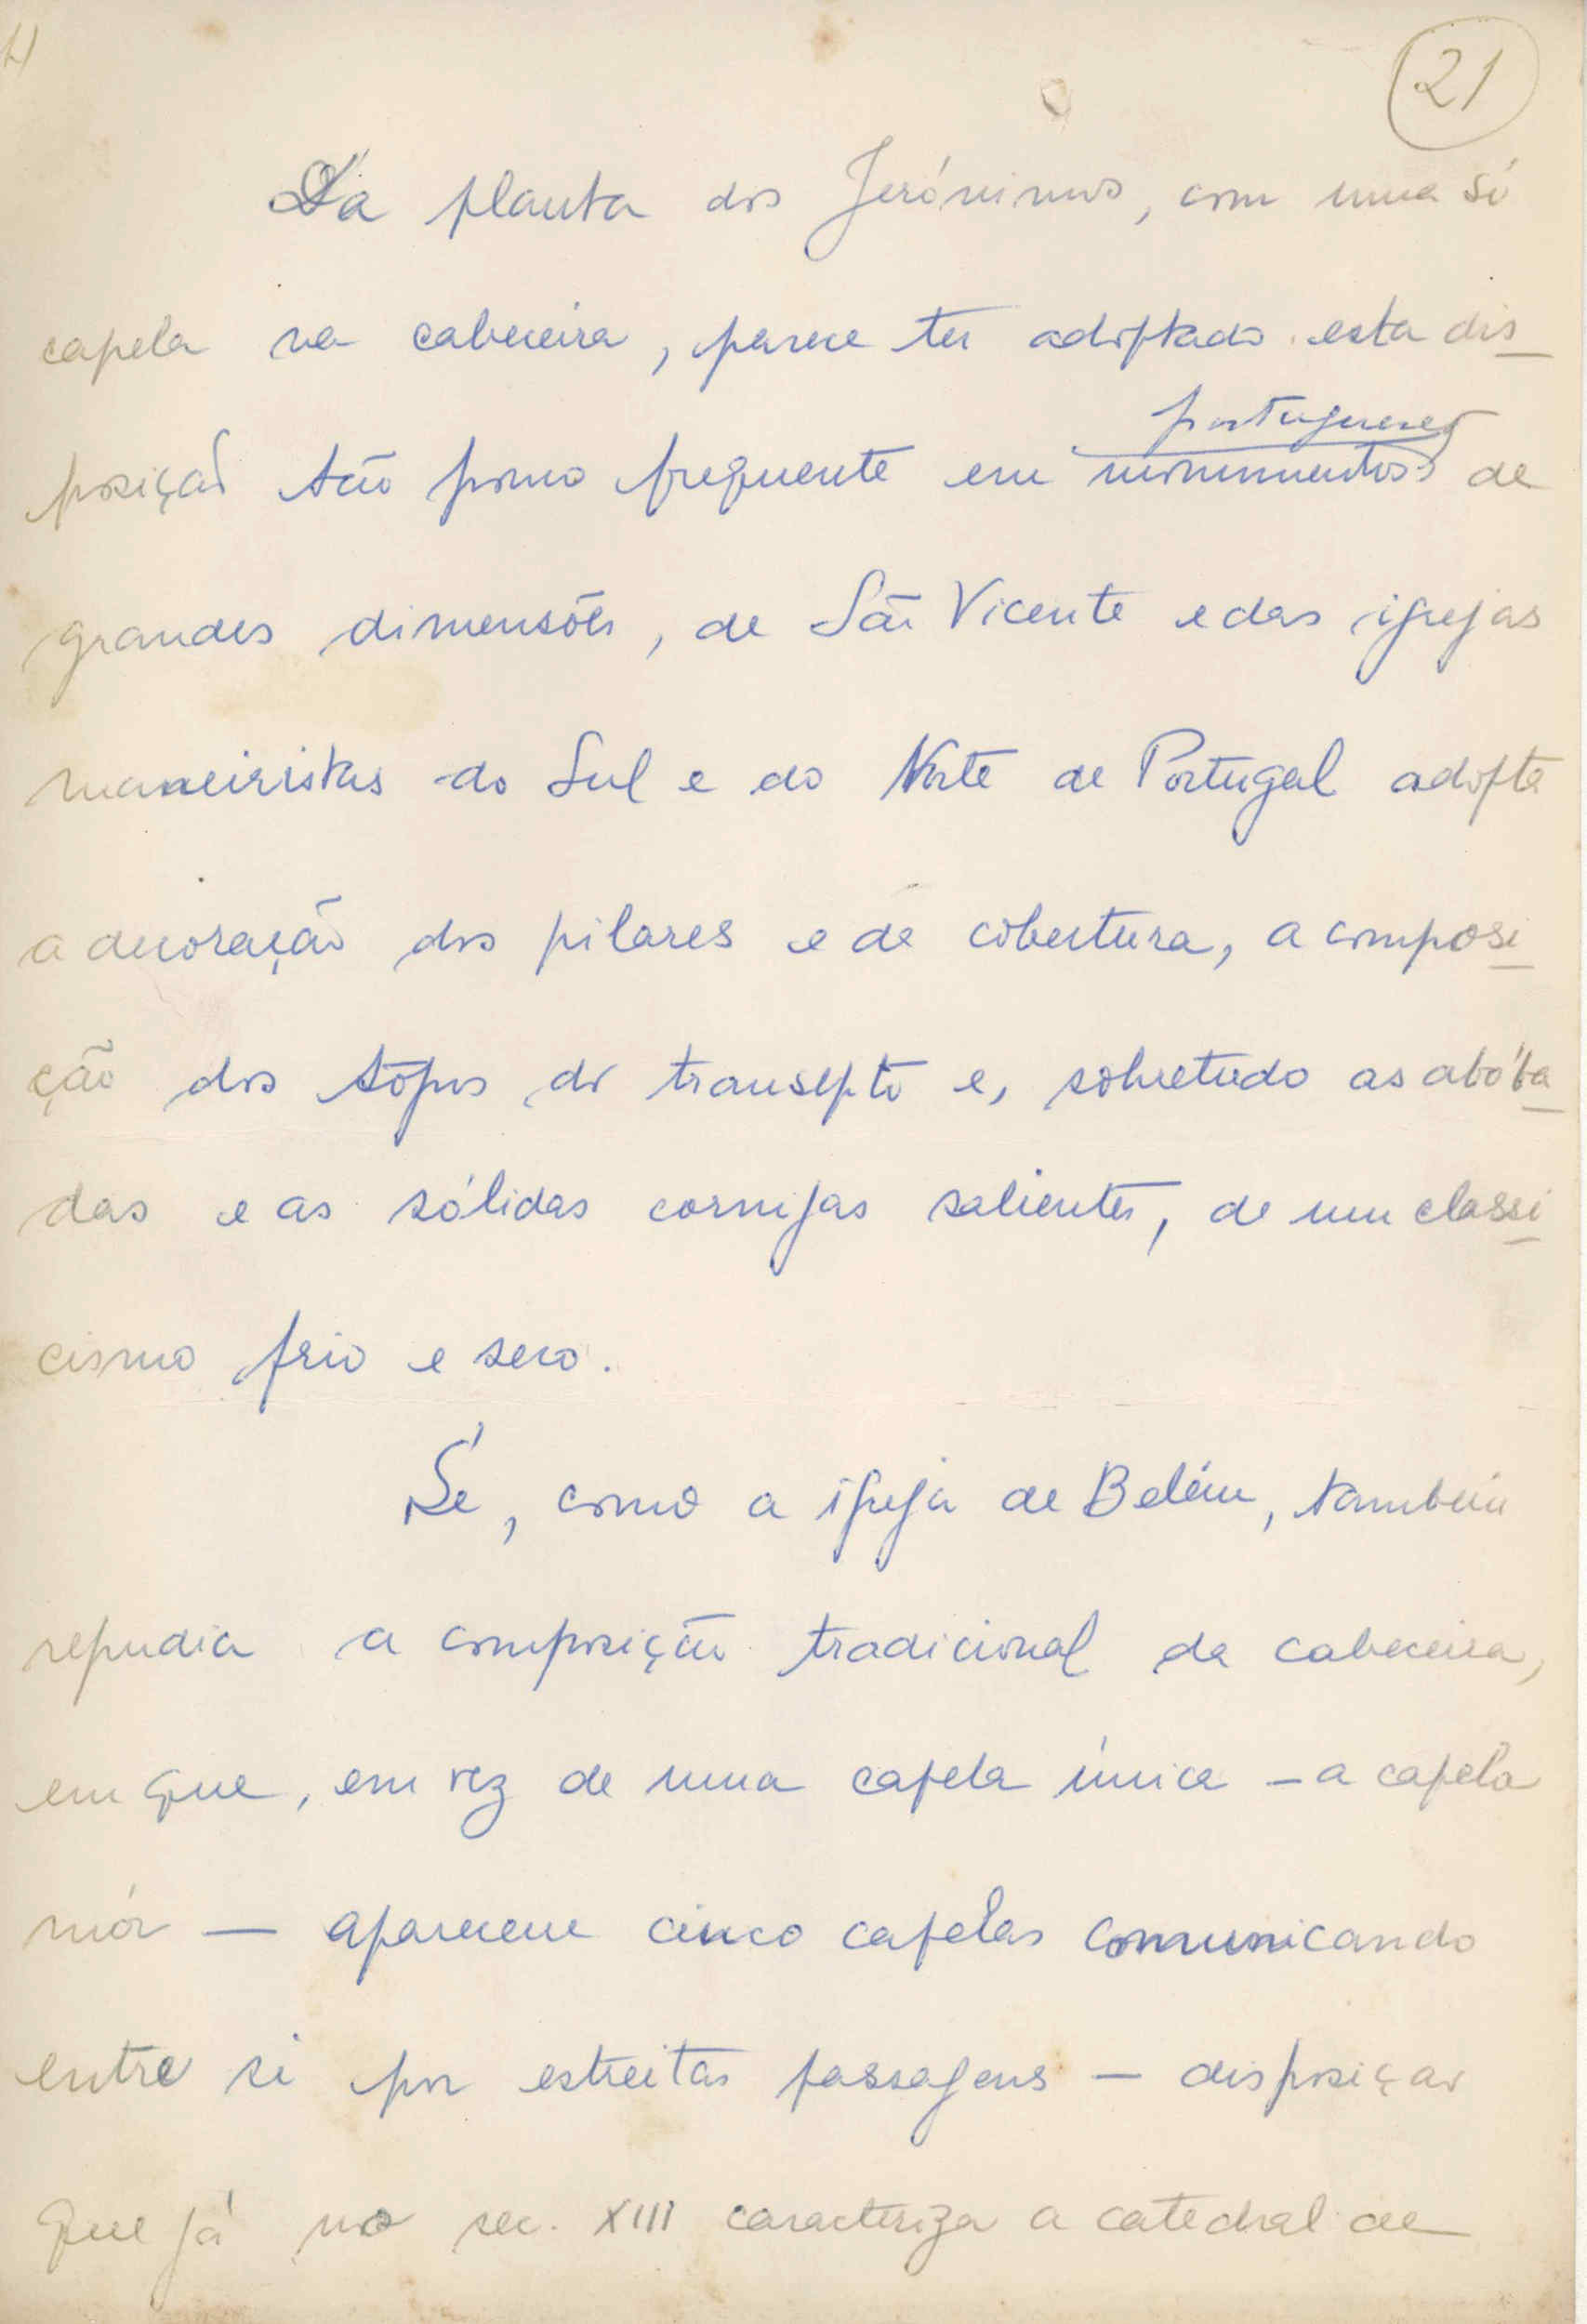 21
Da planta dos Jerónimos, com uma só
capela na cabeceira, parece ter adoptado esta dis
portugueses
posição tão pouco frequente em monumentos de
grandes dimensões, de São Vicente e das igrejas
maneiristas do Sul e do Norte de Portugal adopta
a decoração dos pilares e da cobertura, a composi
ção dos tôpos do transepto e, sobretudo as abóba
das e as sólidas cornijas salientes, de um classi
cismo frio e seco.
Se, como a igreja de Belém, também
repudia a composição tradicional da cabeceira,
em que, em vez de uma capela única – a capela
mór — aparecem cinco capelas comunicando
entre si por estreitas passagens – disposição
que já no sec. XIII caracteriza a catedral de